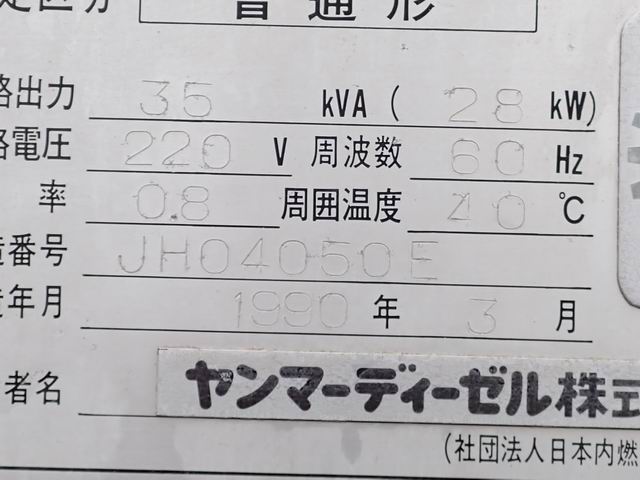 定区分 普通形
格出力 35 kVA ( 28 kW)
格電圧 220 V 周波数 60 Hz
率 0.8 周囲温度 40 ℃
造番号 JH04050E
造年月 1990 年 3 月
者名 ヤンマーディーゼル株式
(社団法人日本内燃